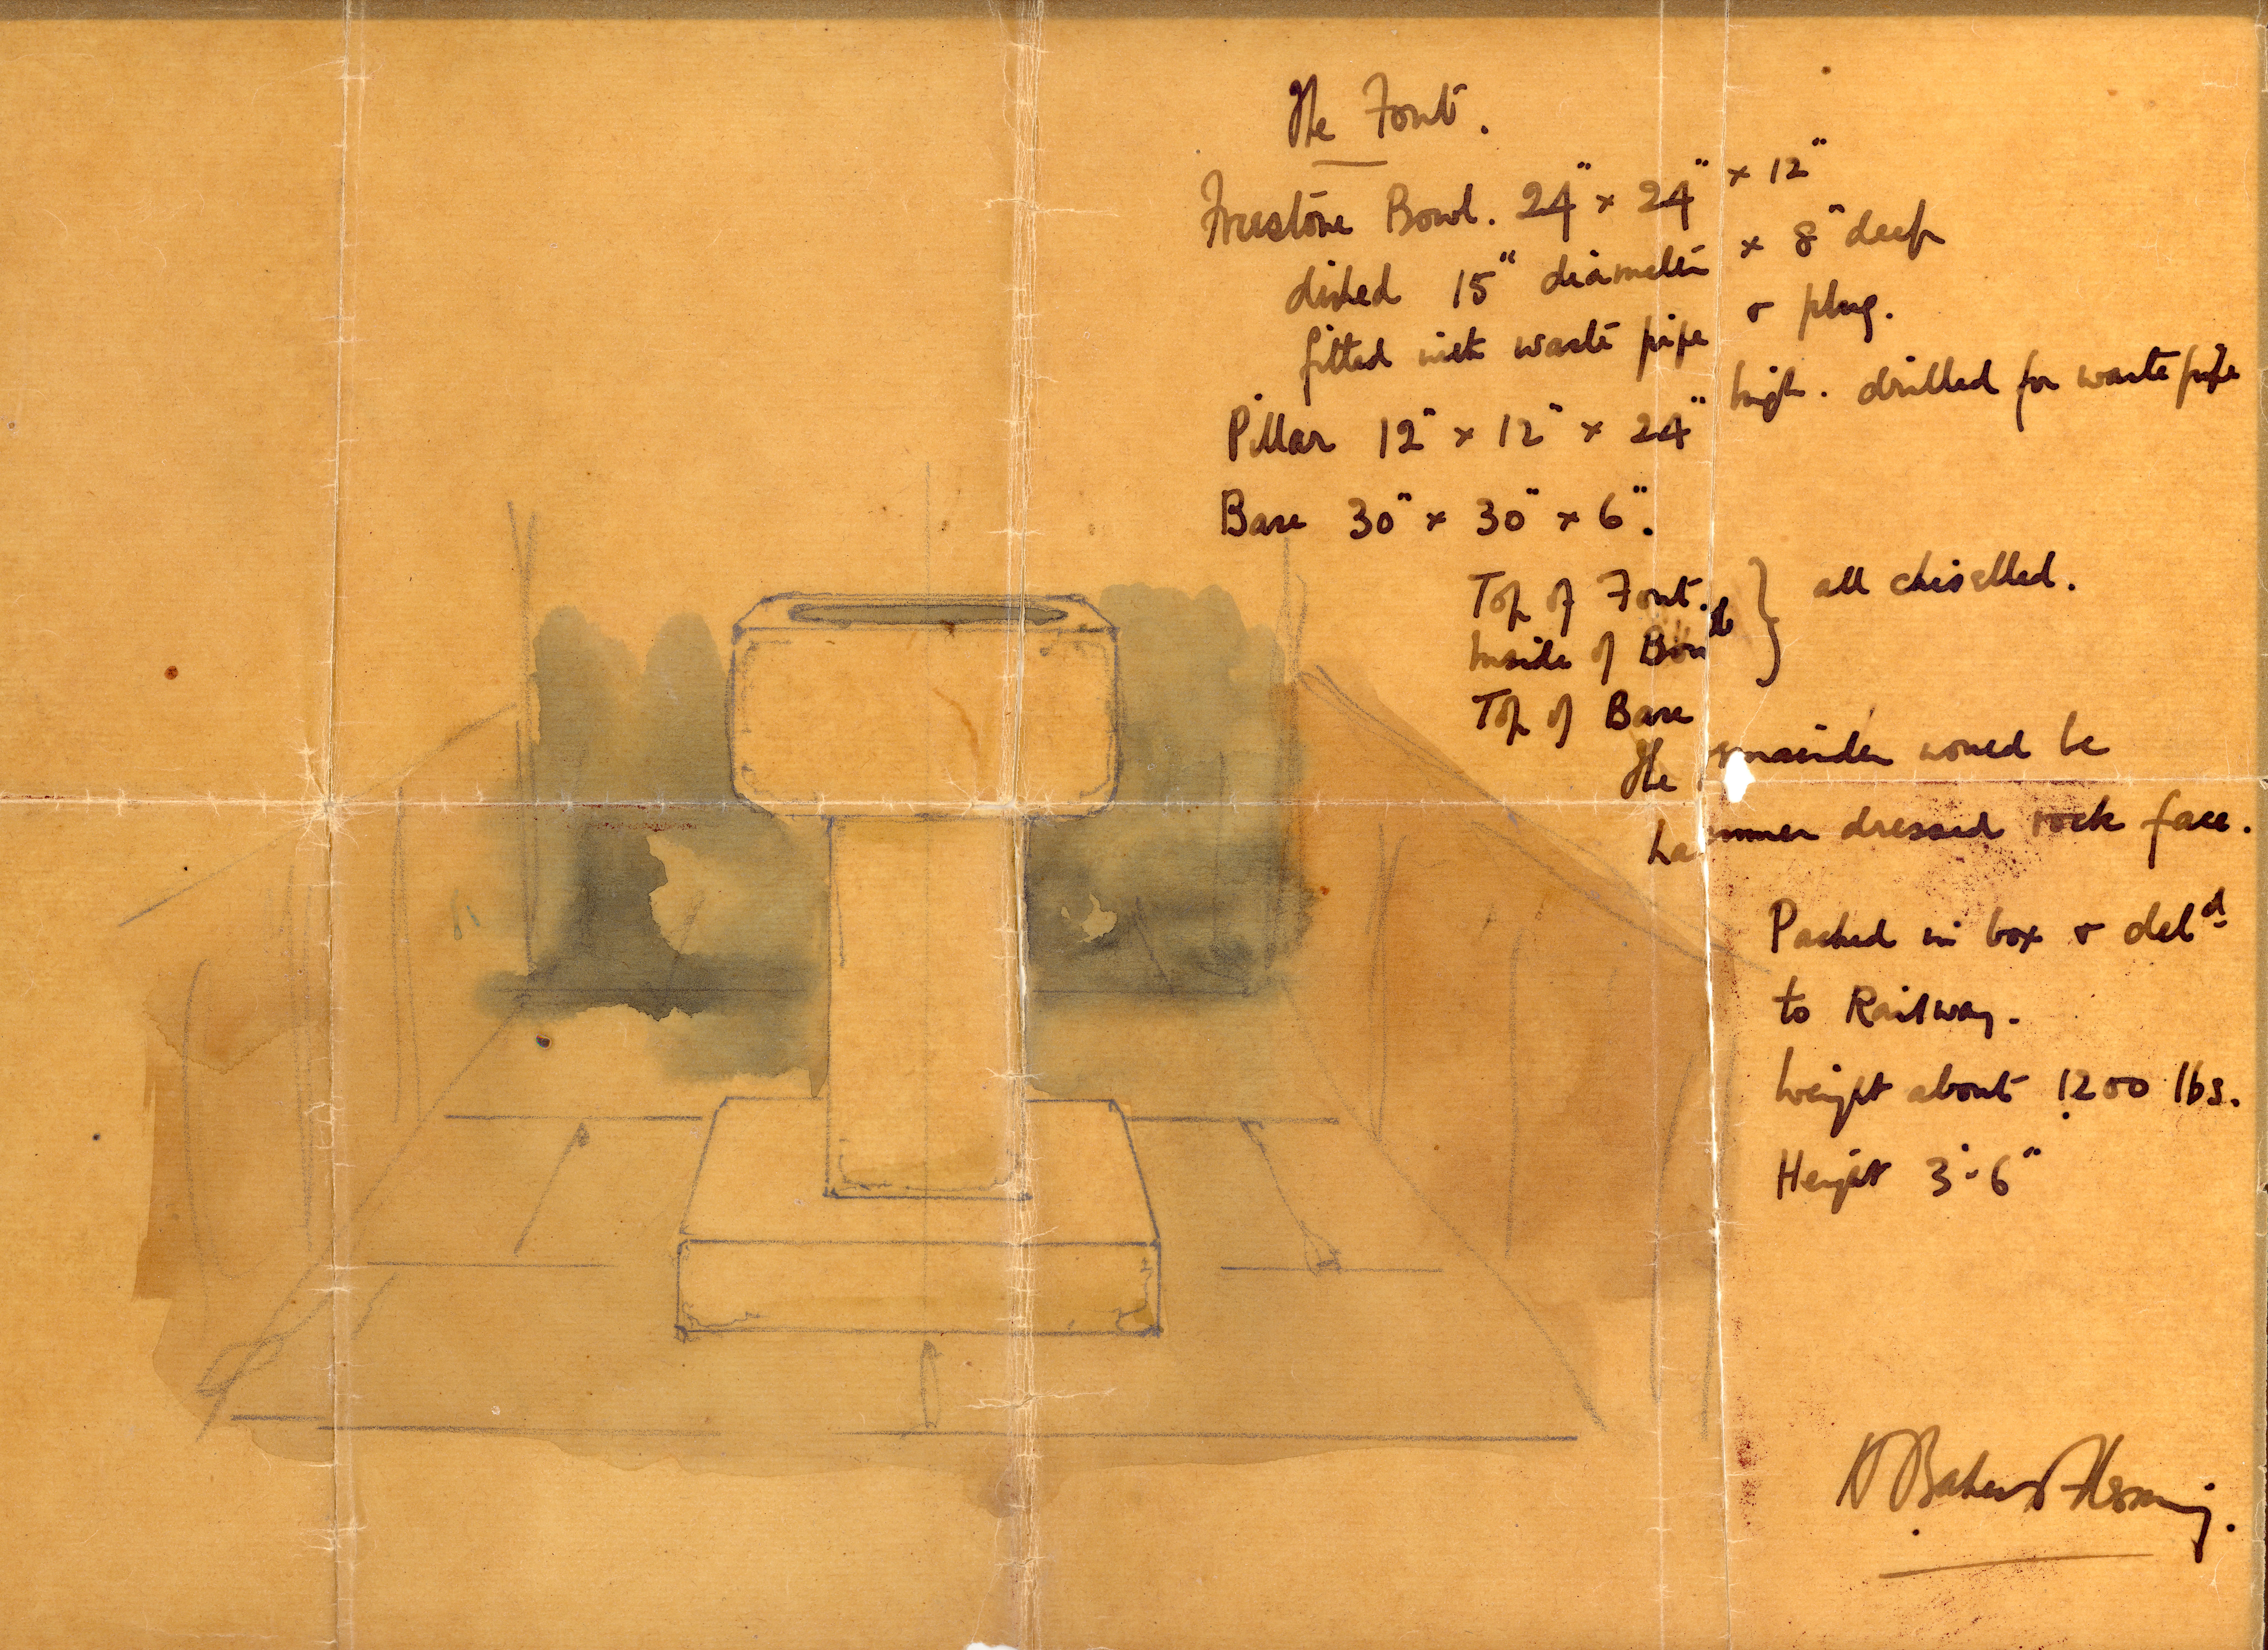 The Font.
Freestone Bowl. 24" x 24" x 12"
dished 15" diameter x 8" deep
fitted with waste pipe & plug.
Pillar 12" x 12" x 24" high. drilled for waste pipe
Base 30" x 30" x 6".
Top of Font. } all chiselled.
Inside of Bowl
Top of Base
The remainder would be
hammer dressed rock face.
Packed in box & del^d.
to Railway.
Weight about 1200 lbs.
Height 3'-6"